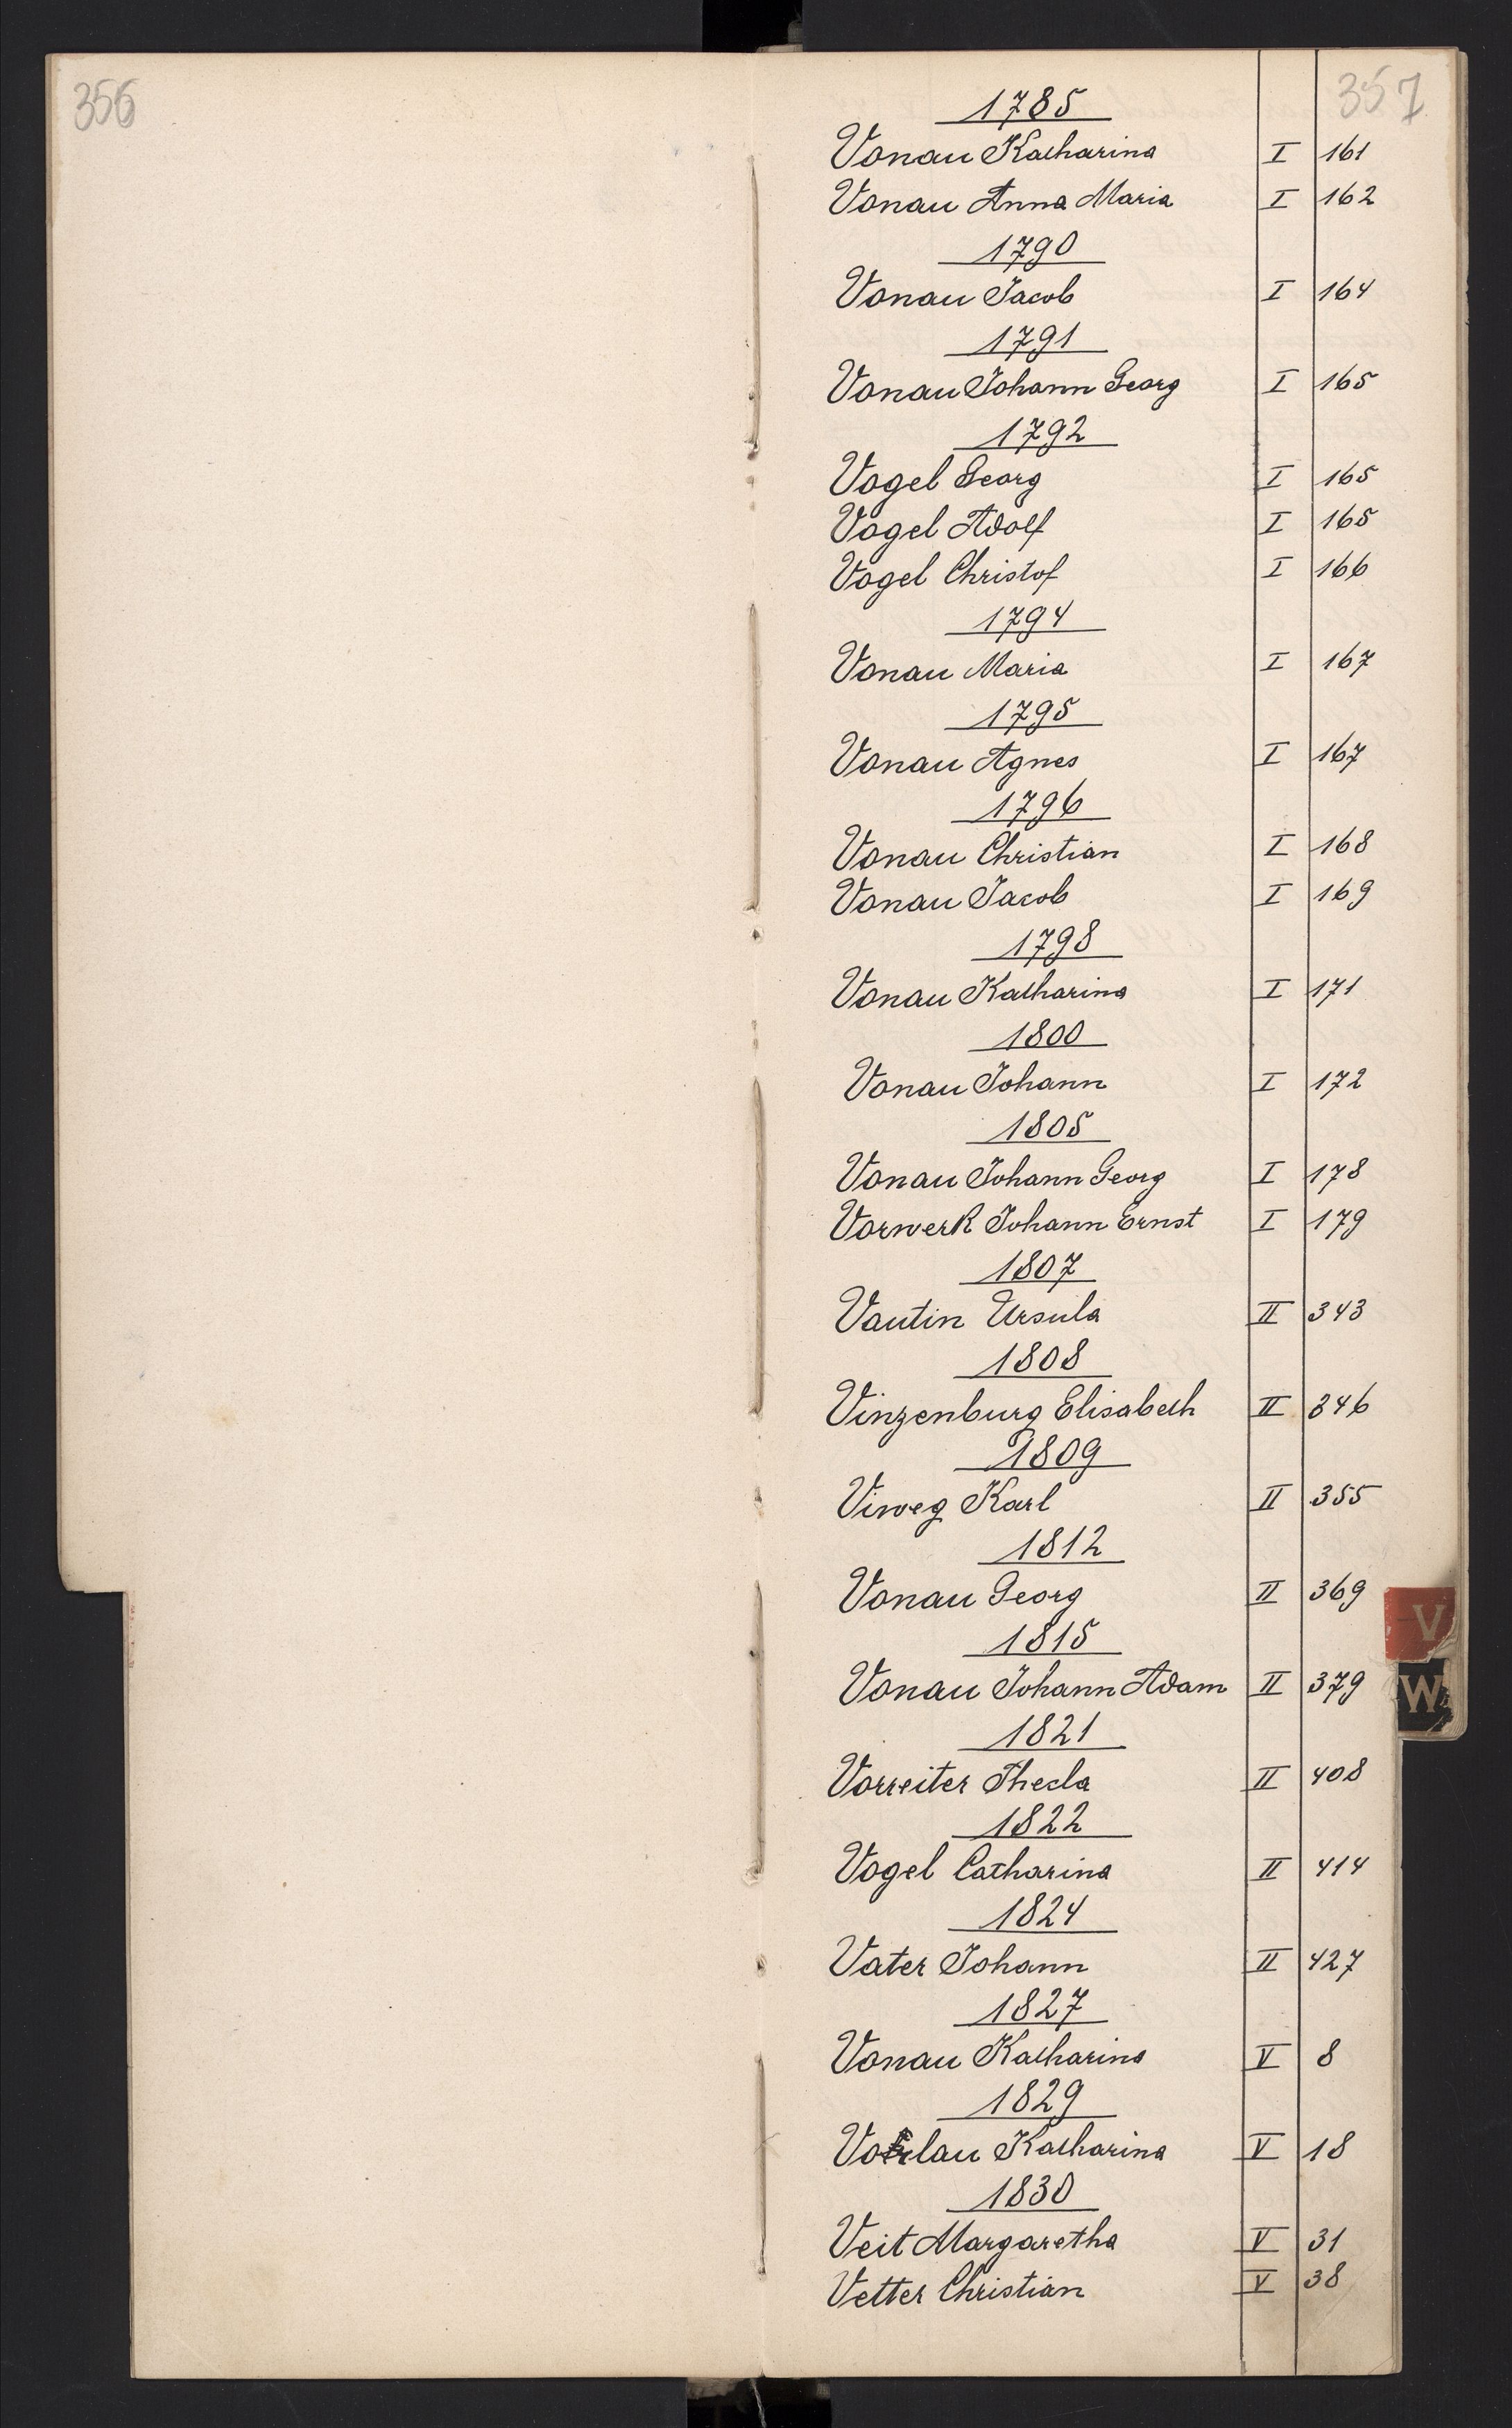 356
357
1785
Vonau Katharina I 161
Vonau Anna Maria I 162
1790
Vonau Jacob I 164
1791
Vonau Johann Georg I 165
1792
Vogel Georg I 165
Vogel Adolf I 165
Vogel Christof I 166
1794
Vonau Maria I 167
1795
Vonau Agnes I 167
1796
Vonau Christian I 168
Vonau Jacob I 169
1798
Vonau Katharina I 171
1800
Vonau Johann I 172
1805
Vonau Johann Georg I 178
Vorwerk Johann Ernst I 179
1807
Vautin Ursula II 343
1808
Vinzenburg Elisabeth II 346
1809
Viweg Karl II 355
1812
Vonau Georg II 369
1815
Vonau Johann Adam II 379
V
W
1821
Vorreiter Thecla II 408
1822
Vogel Catharina II 414
1824
Vater Johann II 427
1827
Vonau Katharina V 8
1829
Katharina V 18
1830
Veit Margaretha V 31
Vetter Christian V 38